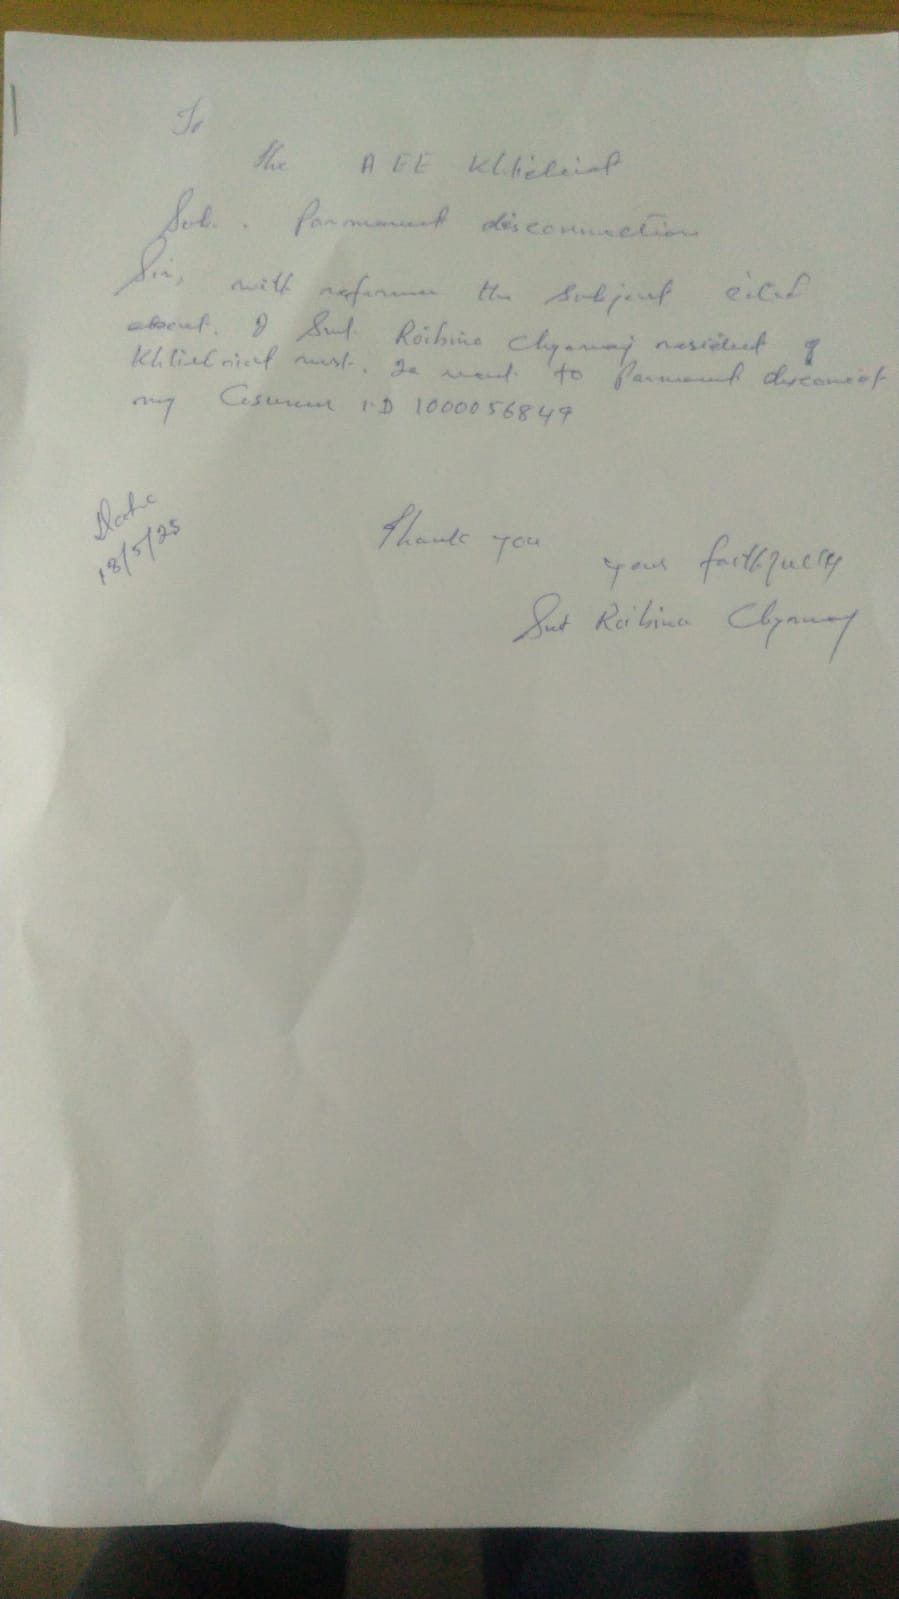 To
the AEE Khliehriat
Sub. Parmanent disconnection
Sir, with reference the Subject cited
about. I Smt. Roibina Chyrmang resident of
Khliehriat west. to want to Parmanent disconnect
my Cosumer I.D 1000056849
Date
18/5/25
Thank you
your faithfully
Smt Roibina Chyrmang